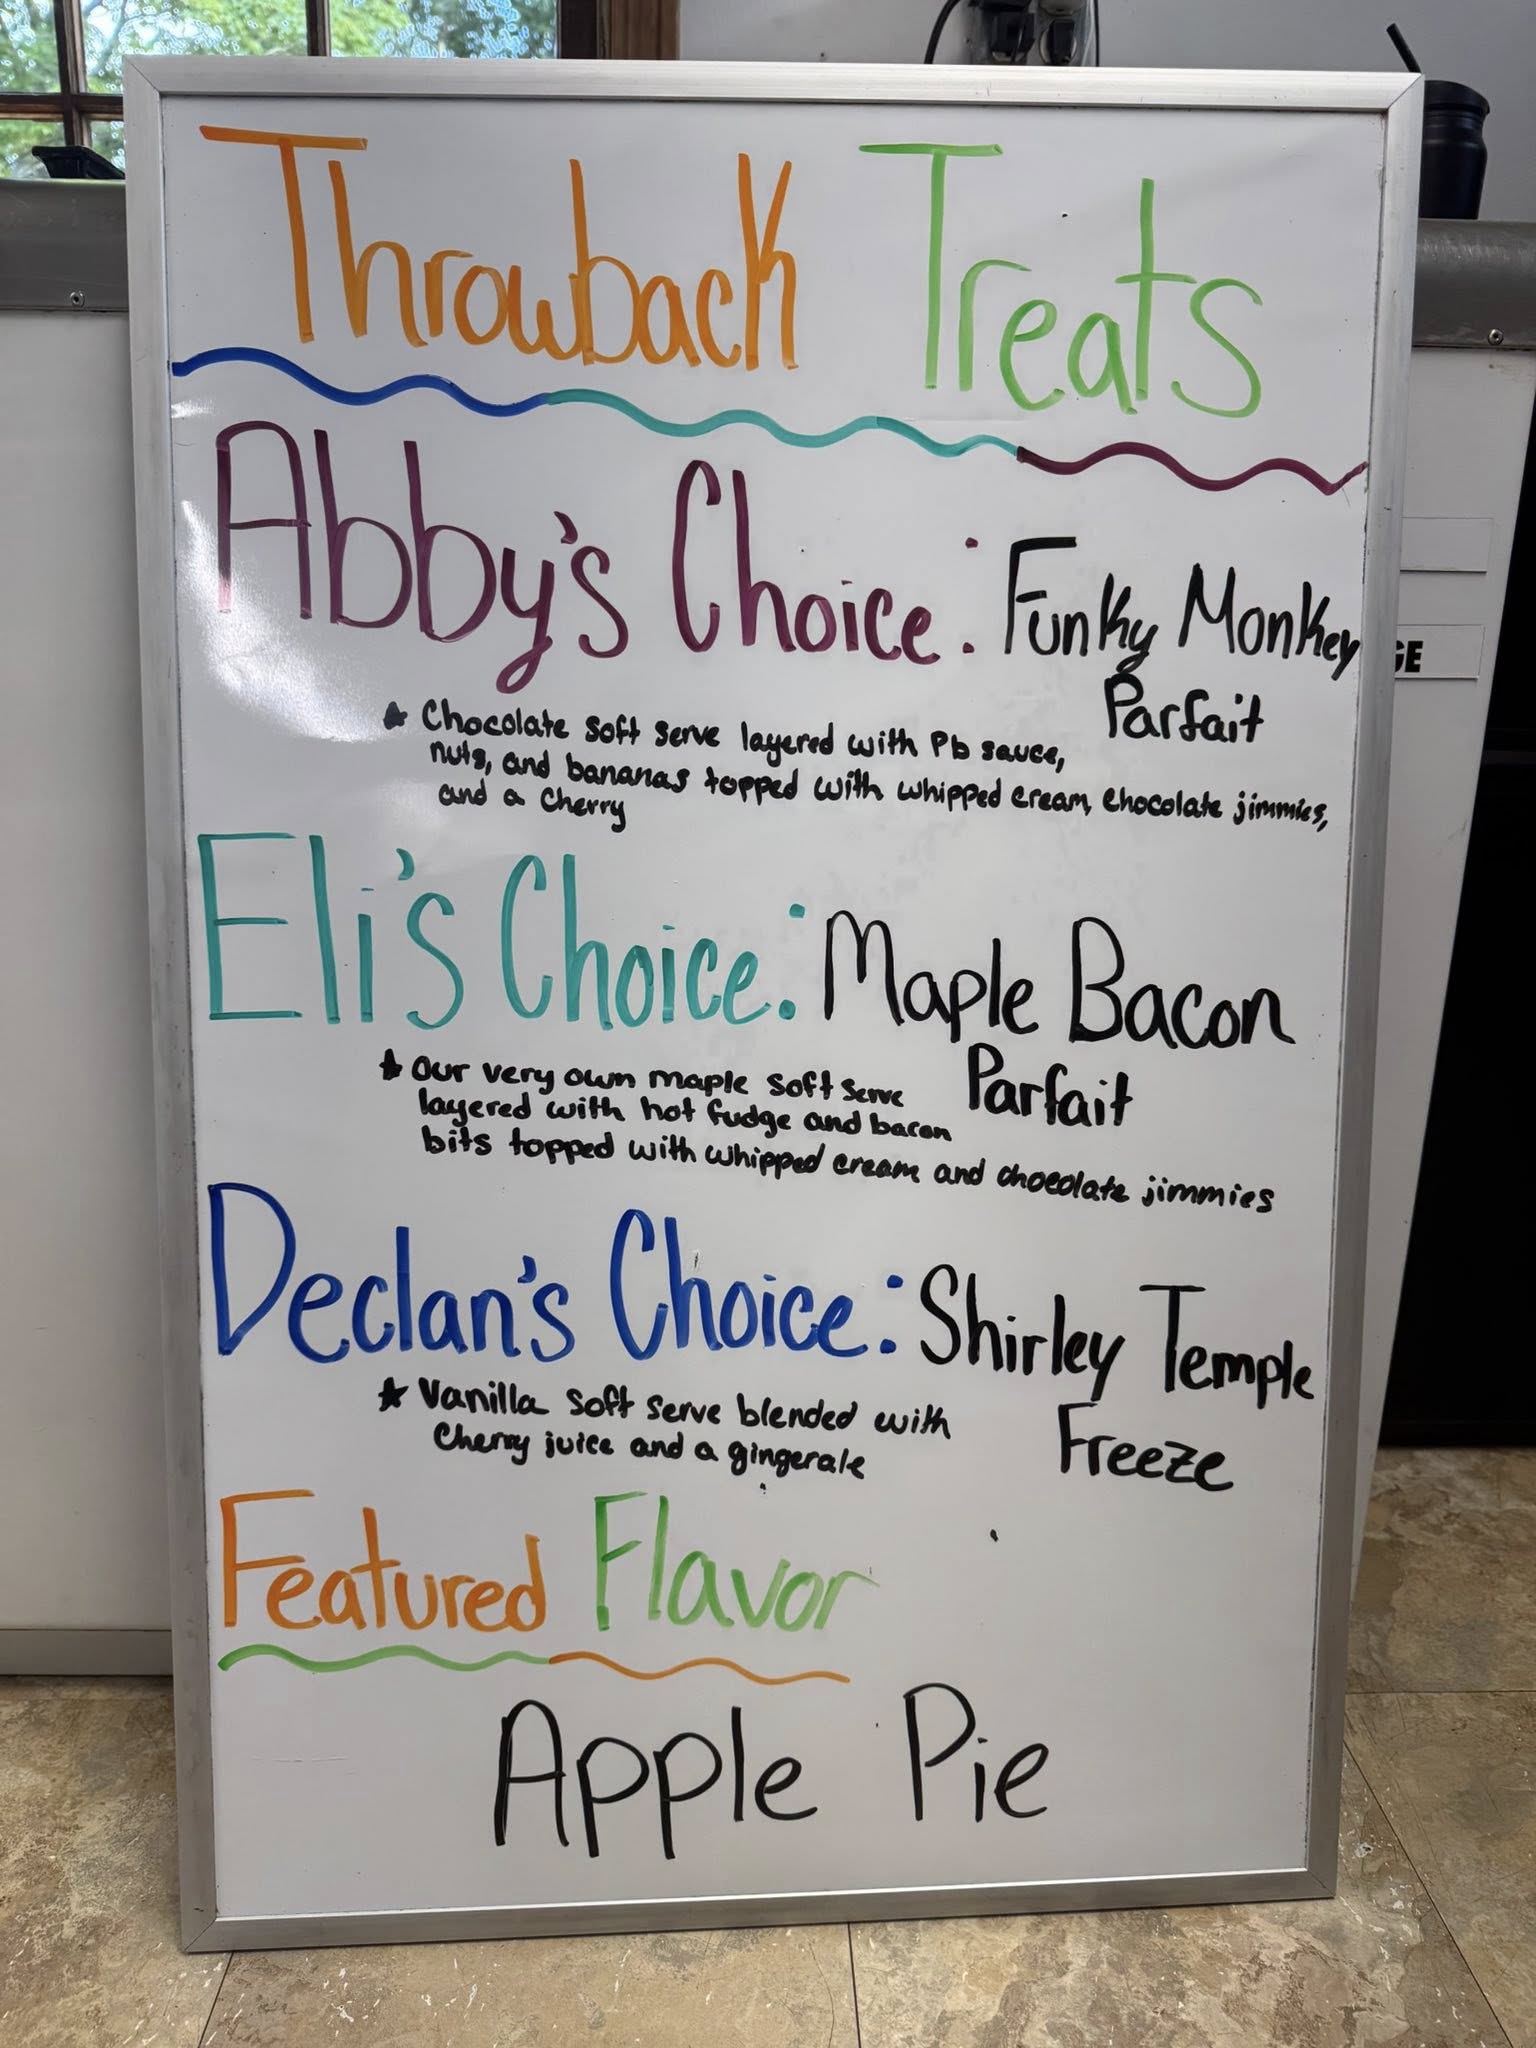 Throwback Treats
Abby's Choice: Funky Monkey
Parfait
★ Chocolate soft serve layered with Pb sauce,
nuts, and bananas topped with whipped cream, chocolate jimmies,
and a cherry
Eli's Choice: Maple Bacon
Parfait
★ Our very own maple soft serve
layered with hot fudge and bacon
bits topped with whipped cream and chocolate jimmies
Declan's Choice: Shirley Temple
Freeze
★ Vanilla soft serve blended with
cherry juice and a gingerale
Featured Flavor
Apple Pie
GE